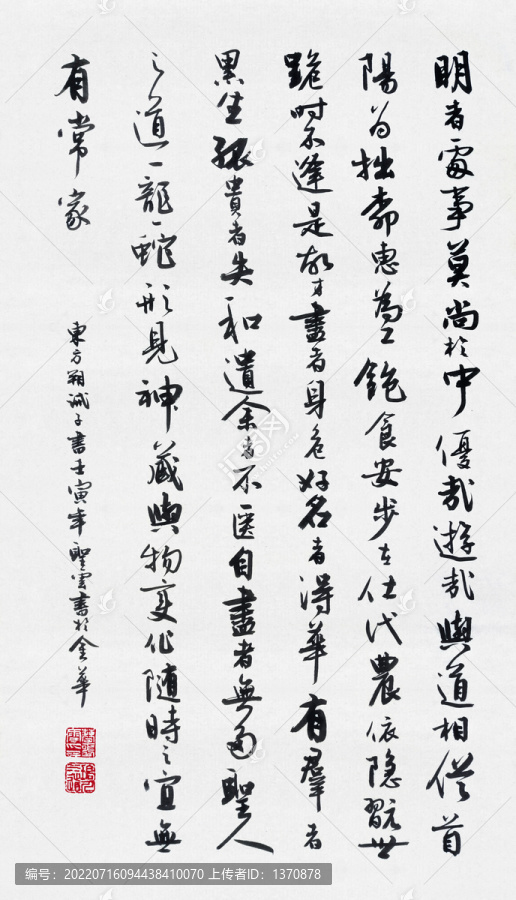 明者處事莫尚於中優哉遊哉與道相從首
陽为拙柳惠為工飽食安步在仕代農依隱翫世
詭時不逢是故才盡者身危好名者得華有羣者
累生孤貴者失和遺余者不匱自盡者無多聖人
之道一龍一蛇形見神藏與物變化随時之宜無
有常家
東方朔誡子書壬寅年聖雲書於金華
编号：20220716094438410070 上传者编号：1370878